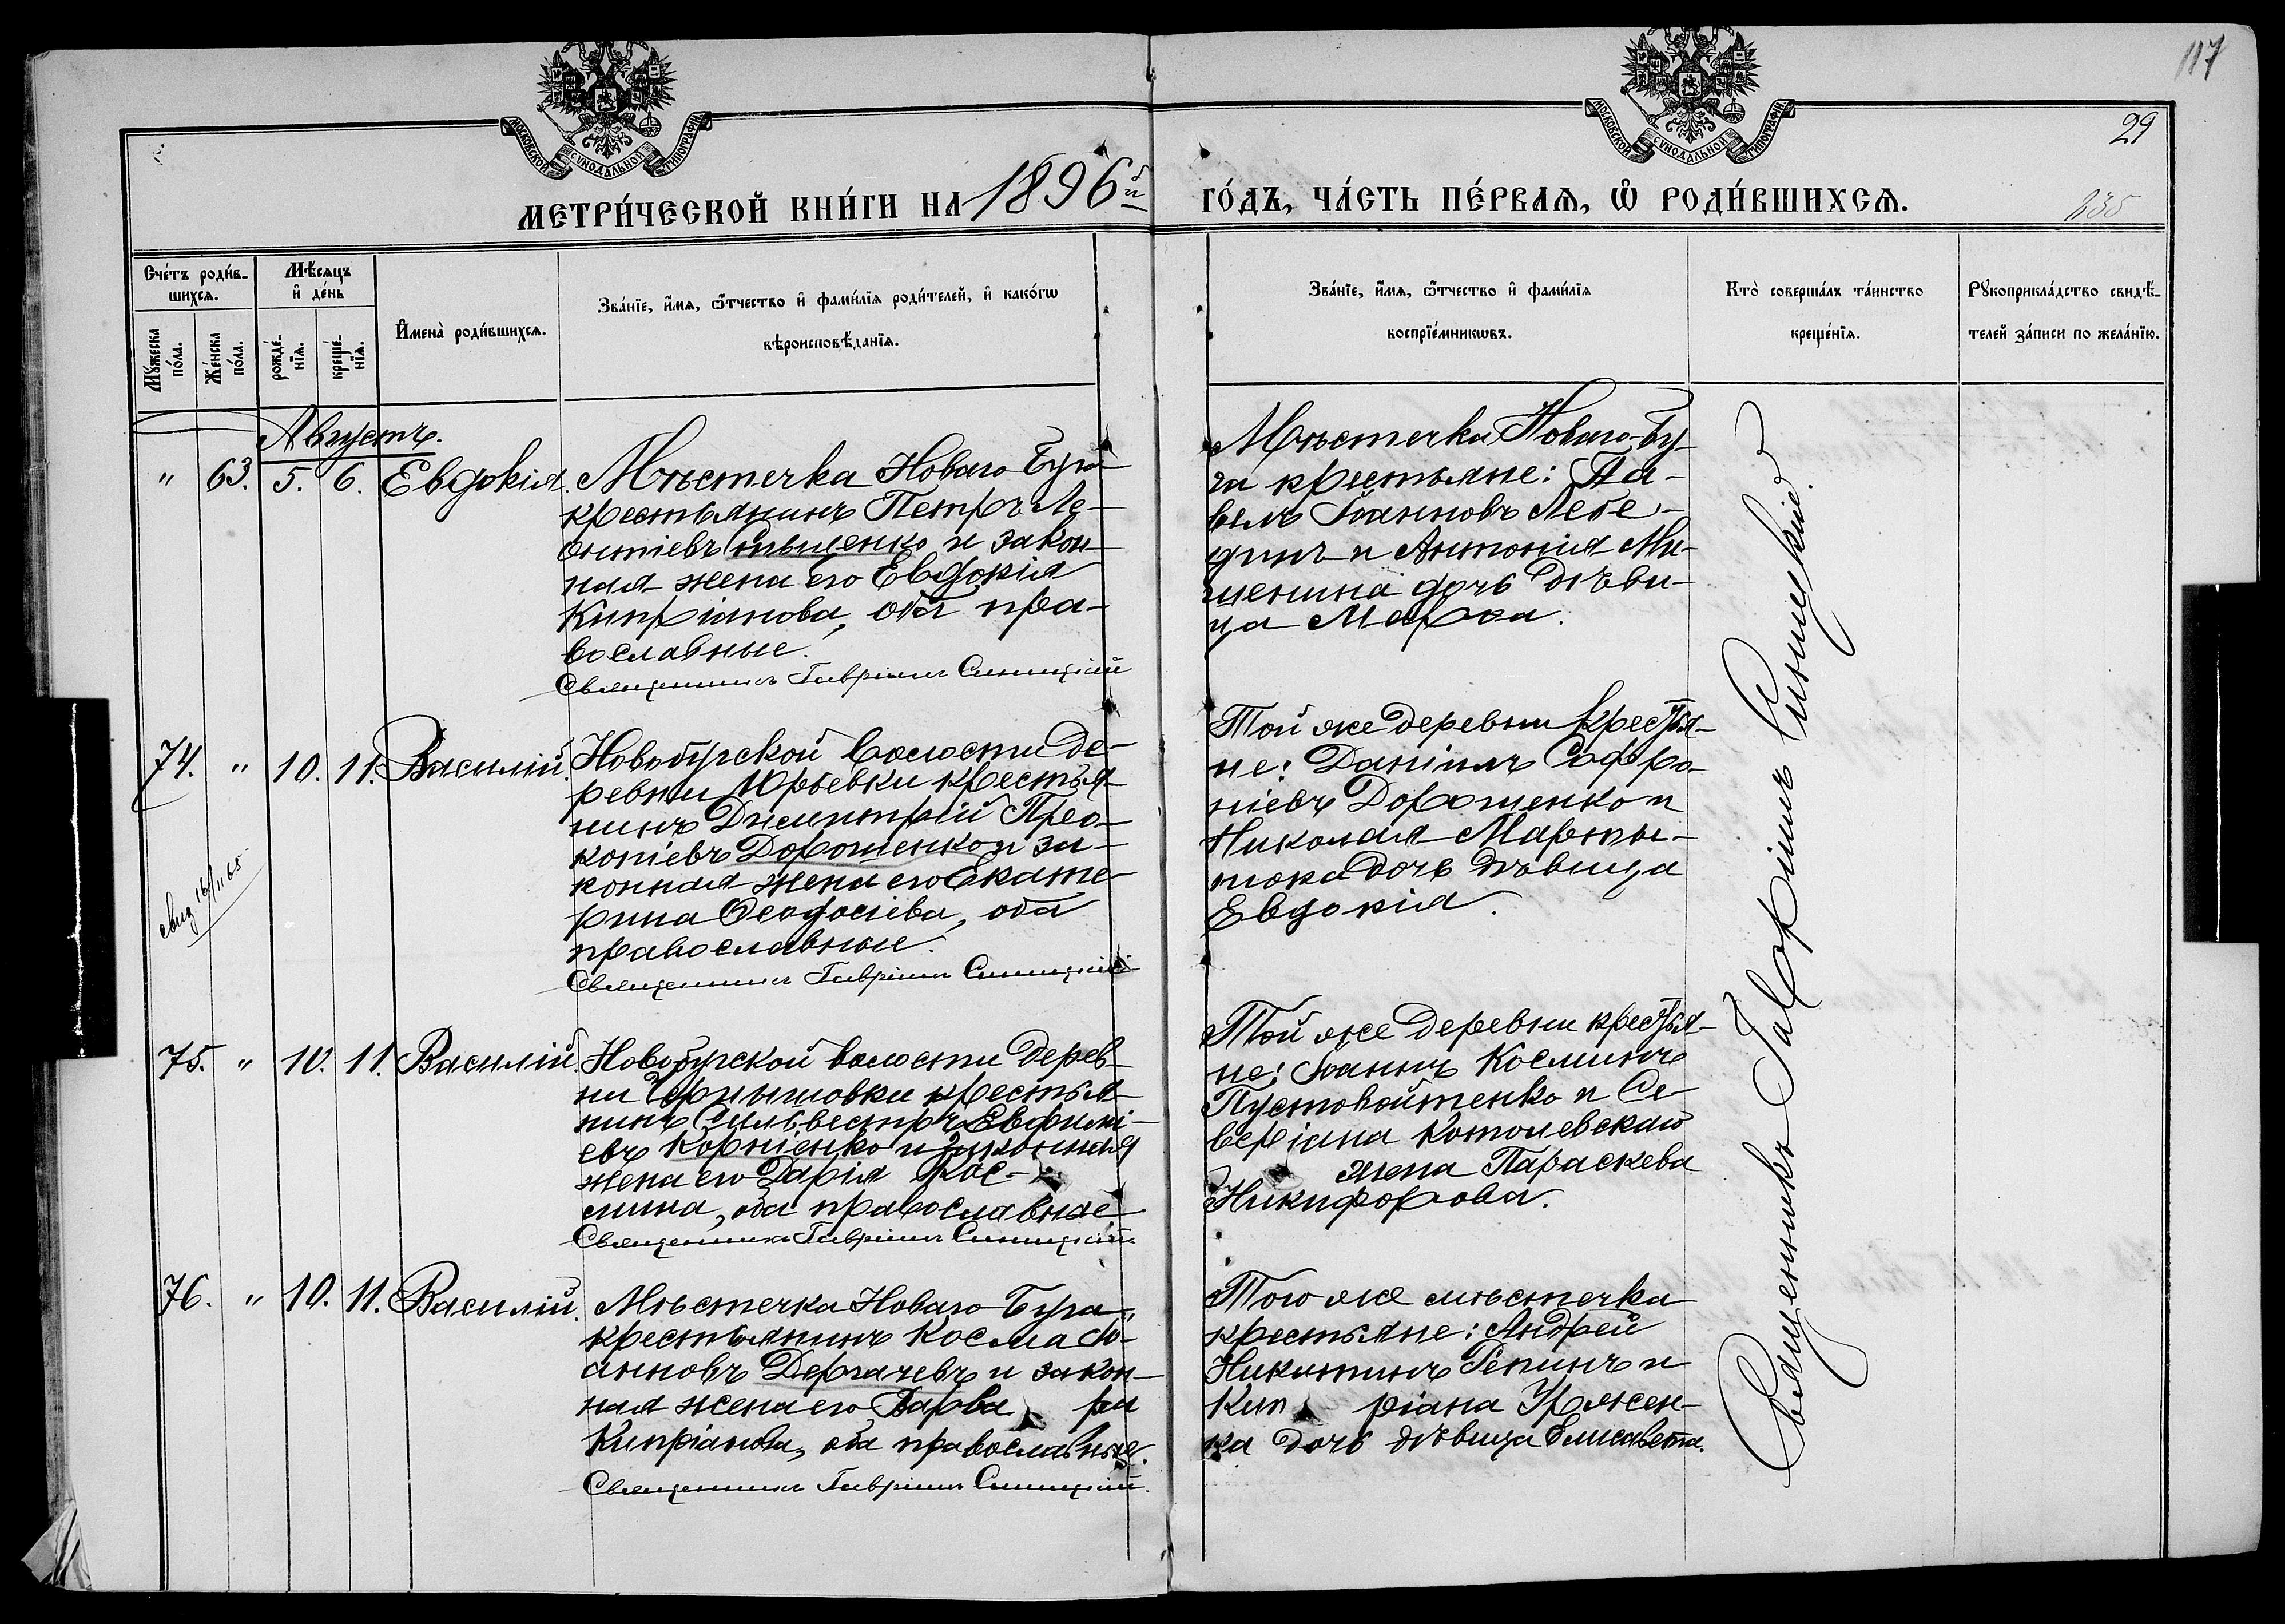 117
29
235
МОСКОВСКОЙ СУНОДАЛЬНОЙ ТИПОГРАФІИ
МОСКОВСКОЙ СУНОДАЛЬНОЙ ТИПОГРАФІИ
МЕТРИ́ЧЕСКОЙ КНИ́ГИ НА 1896й ГО́ДЪ, ЧА́СТЬ ПЕ́РВАѦ, Ѡ РОДИ́ВШИХСѦ.
Сче́тъ роди́в-
шихсѧ.
Мꙋ́жеска по́ла.
Же́нска по́ла.
Мѣ́сѧцъ и҆ де́нь
рожде́-
нїѧ.
креще́-
нїѧ.
И҆мена̀ роди́вшихсѧ.
Зва́нїе, и҆́мѧ, ѻ҆́тчество и҆ фами́лїѧ роди́телей, и҆ како́гѡ
вѣроисповѣ́данїѧ.
Зва́нїе, и҆́мѧ, ѻ҆́тчество и҆ фами́лїѧ
воспрїе́мникѡвъ.
Кто̀ соверша́лъ та́инство
креще́нїѧ.
Рꙋкоприкла́дство свидѣ́-
телей за́писи по жела́нїю.
Августъ.
" 63. 5. 6. Евдокія.
Мѣстечка Новаго Буга
крестьянинъ Петръ Ле-
онтіевъ и закон-
ная жена его Евдокія
Кипріанова, оба пра-
вославные.
Священникъ Гавріилъ Синицкій
Мѣстечка Новаго-Бу-
га крестьяне: Па-
велъ Іоанновъ Лебе-
динъ и Антонія Ми-
шенина дочь дѣви-
ца Марѳа.
74. " 10. 11. Василій.
свид 16/II 65
Новобугской волости де-
ревни Юрьевки крестья-
нинъ Димитрій Про-
копіевъ Дорошенко и за-
конная жена его Екате-
рина Ѳеодосіева, оба
православные.
Священникъ Гавріилъ Синицкій
Той же деревни крестья-
не: Даніилъ Софро-
ніевъ Дорошенко и
Николая Марты-
нюка дочь дѣвица
Евдокія.
75. " 10. 11. Василій.
Новобугской волости дерев-
ни крестья-
нинъ Сильвестръ Евфимі-
евъ Корніенко и законная
жена его Дарія Кос-
мина, оба православные
Священникъ Гавріилъ Синицкій
Той же деревни крестья-
не: Іоаннъ Косминъ
Пустовойтенко и Се-
веріана
жена Параскева
Никифорова.
76. " 10. 11. Василій.
Мѣстечка Новаго Буга,
крестьянинъ Косма Іо-
анновъ Дергачевъ и закон-
ная жена его Варва ра
Кипріанова, оба православные.
Священникъ Гавріилъ Синицкій.
Того же мѣстечка
крестьяне: Андрей
Никитинъ Репинъ и
Кип ріана
ка дочь дѣвица Елисавета.
Священникъ Гавріилъ Синицкій